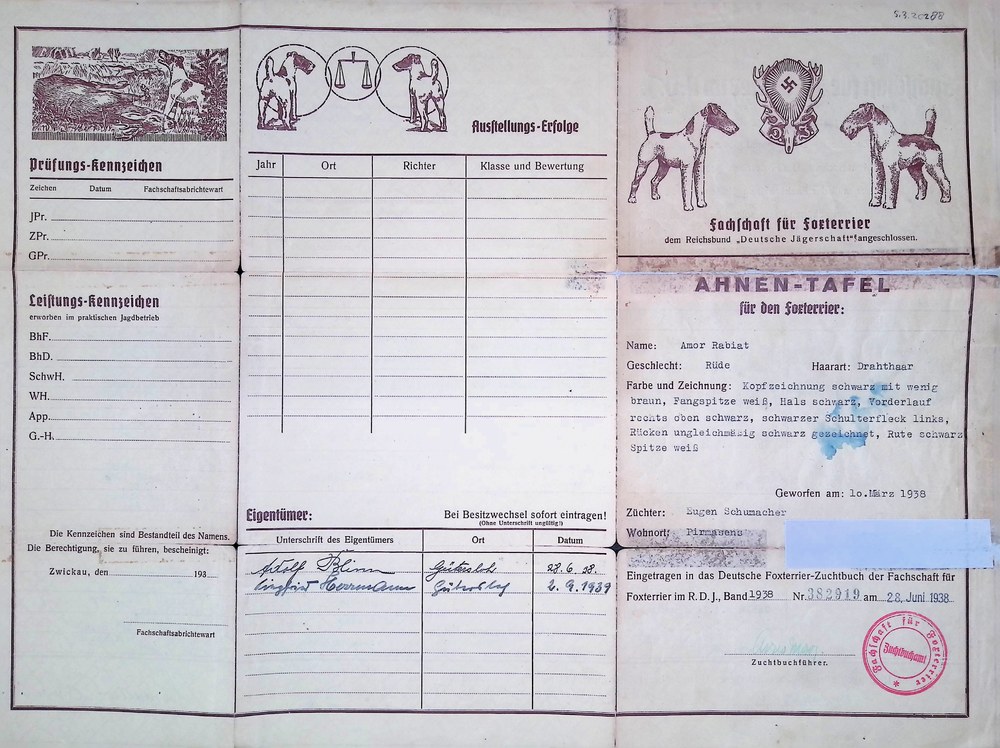 5.3.20288
Prüfungs-Kennzeichen
Zeichen Datum Fachschaftsabrichtewart
JPr.
ZPr.
GPr.
Leistungs-Kennzeichen
erworben im praktischen Jagdbetrieb
BhF.
BhD.
SchwH.
WH.
App.
G.-H.
Die Kennzeichen sind Bestandteil des Namens.
Die Berechtigung, sie zu führen, bescheinigt:
Zwickau, den 193
Fachschaftsabrichtewart
Ausstellungs-Erfolge
Jahr Ort Richter Klasse und Bewertung
Eigentümer:
Bei Besitzwechsel sofort eintragen!
(Ohne Unterschrift ungültig!)
Unterschrift des Eigentümers Ort Datum
Adolf Blinn Gütersloh 28.6.38.
Siegfried Herrmann Gütersloh 2.9.1939
Fachschaft für Foxterrier
dem Reichsbund „Deutsche Jägerschaft“ angeschlossen.
AHNEN-TAFEL
für den Foxterrier:
Name: Amor Rabiat
Geschlecht: Rüde Haarart: Drahthaar
Farbe und Zeichnung: Kopfzeichnung schwarz mit wenig
braun, Fangspitze weiß, Hals schwarz, Vorderlauf
rechts oben schwarz, schwarzer Schulterfleck links,
Rücken ungleichmäßig schwarz gezeichnet, Rute schwarz
Spitze weiß
Geworfen am: 10.März 1938
Züchter: Eugen Schumacher
Wohnort: Pirmasens
Eingetragen in das Deutsche Foxterrier-Zuchtbuch der Fachschaft für
Foxterrier im R.D.J., Band 1938 Nr. 382919 am 28. Juni 1938
Zuchtbuchführer.
Fachschaft für Foxterrier
Zuchtbuchamt